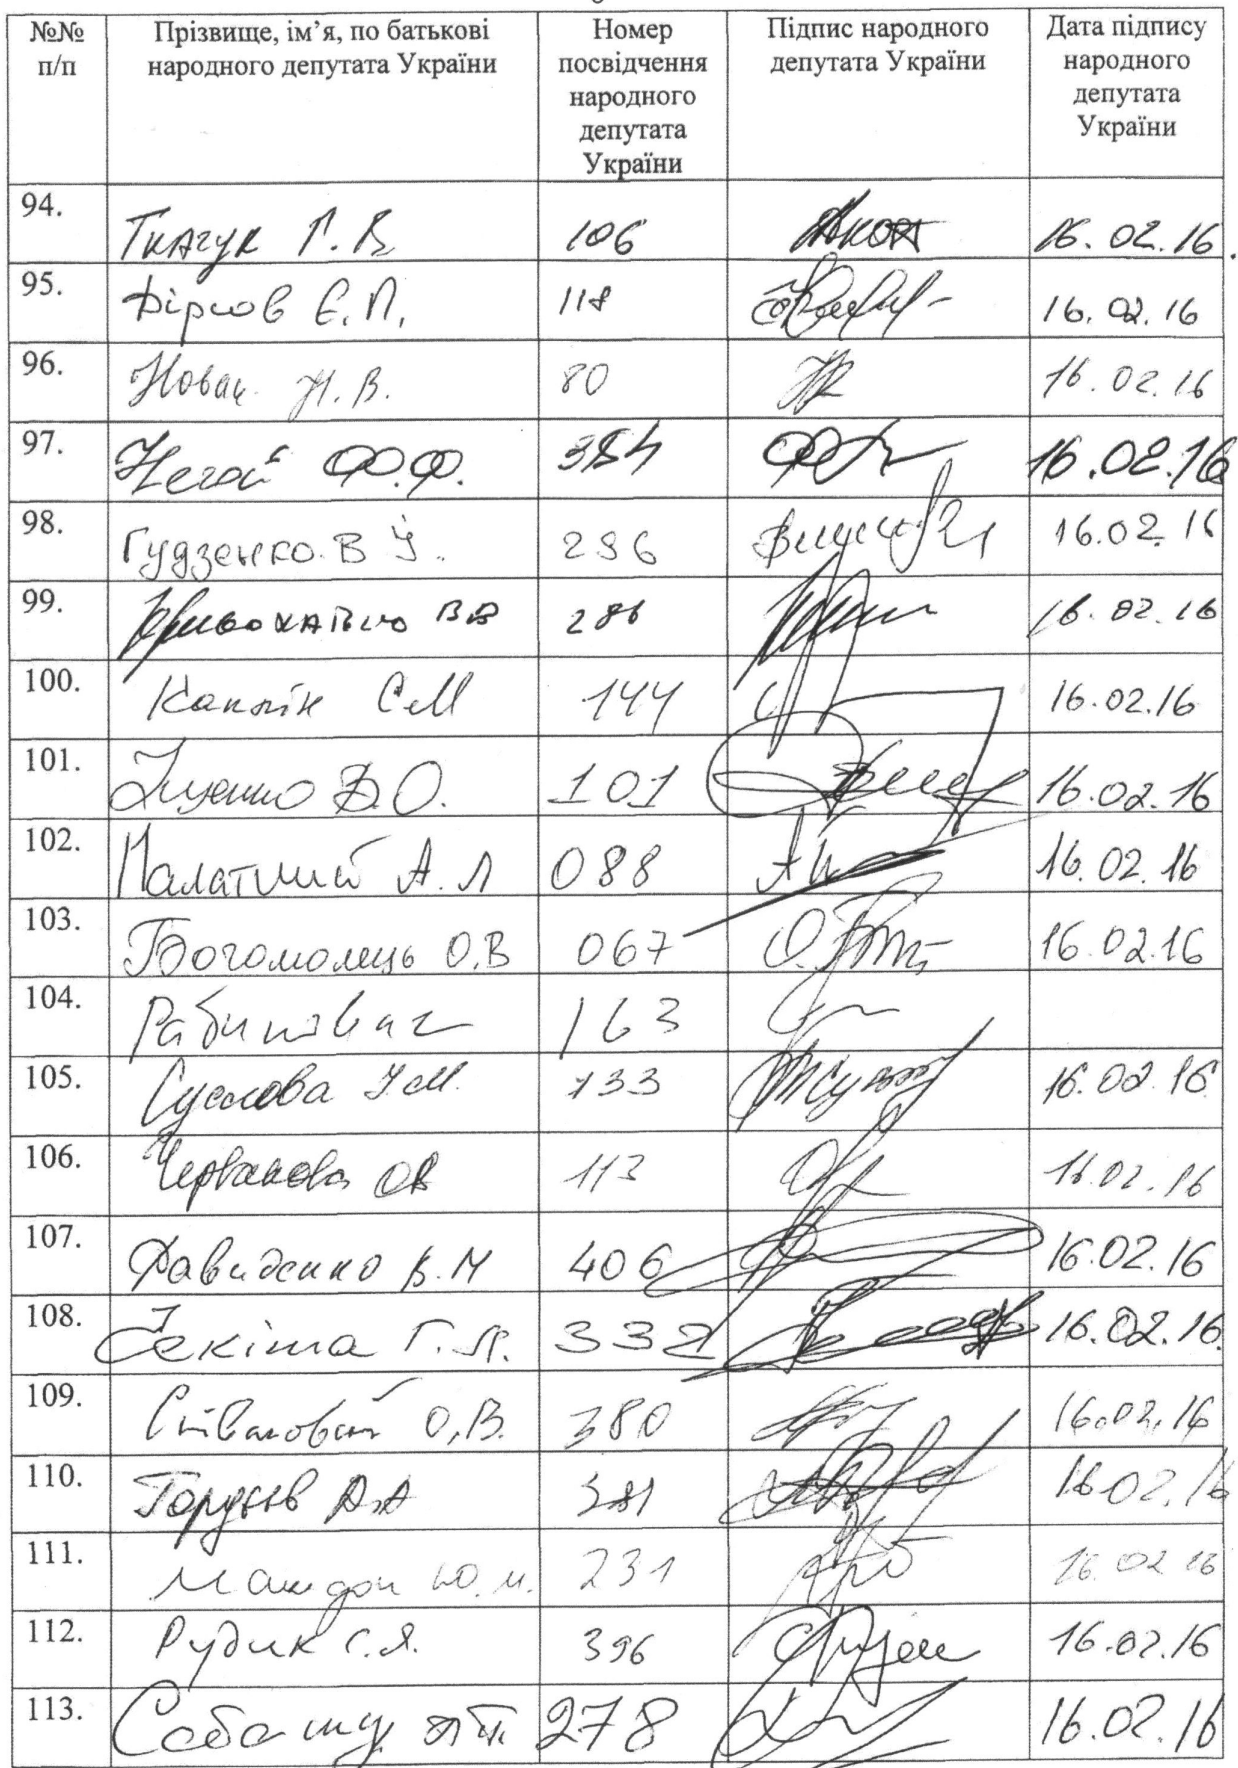 №№ п/п Прізвище, ім’я, по батькові народного депутата України Номер посвідчення народного депутата України Підпис народного депутата України Дата підпису народного депутата України
94. Ткачук Г. В 106 16. 02. 16.
95. Фірсов Є. П. 118 16. 02. 16
96. Новак Н. В. 80 16. 02. 16
97. Негой Ф.Ф. 384 16.02.16
98. Гудзенко В І. 296 16.02.16
99. Кривохатько ВВ 286 16. 02. 16
100. Каплін С.М 144 16.02.16
101. Іщенко В.О. 101 16.02.16
102. Палатний А. Л 088 16.02.16
103. Богомолець О.В 067 16.02.16
104. Рабинович 163
105. Суслова І.М. 133 16.02.16
106. Червакова ОВ 113 16.02.16
107. Давиденко В. М 406 16.02.16
108. Г. 332 16.02.16
109. О.В. 380 16.02.16
110. Гордєєв А.А 381 16.02.16
111. Ю. М. 231 16 02 16
112. Рудик С.Я. 396 16.02.16
113. 278 16.02.16